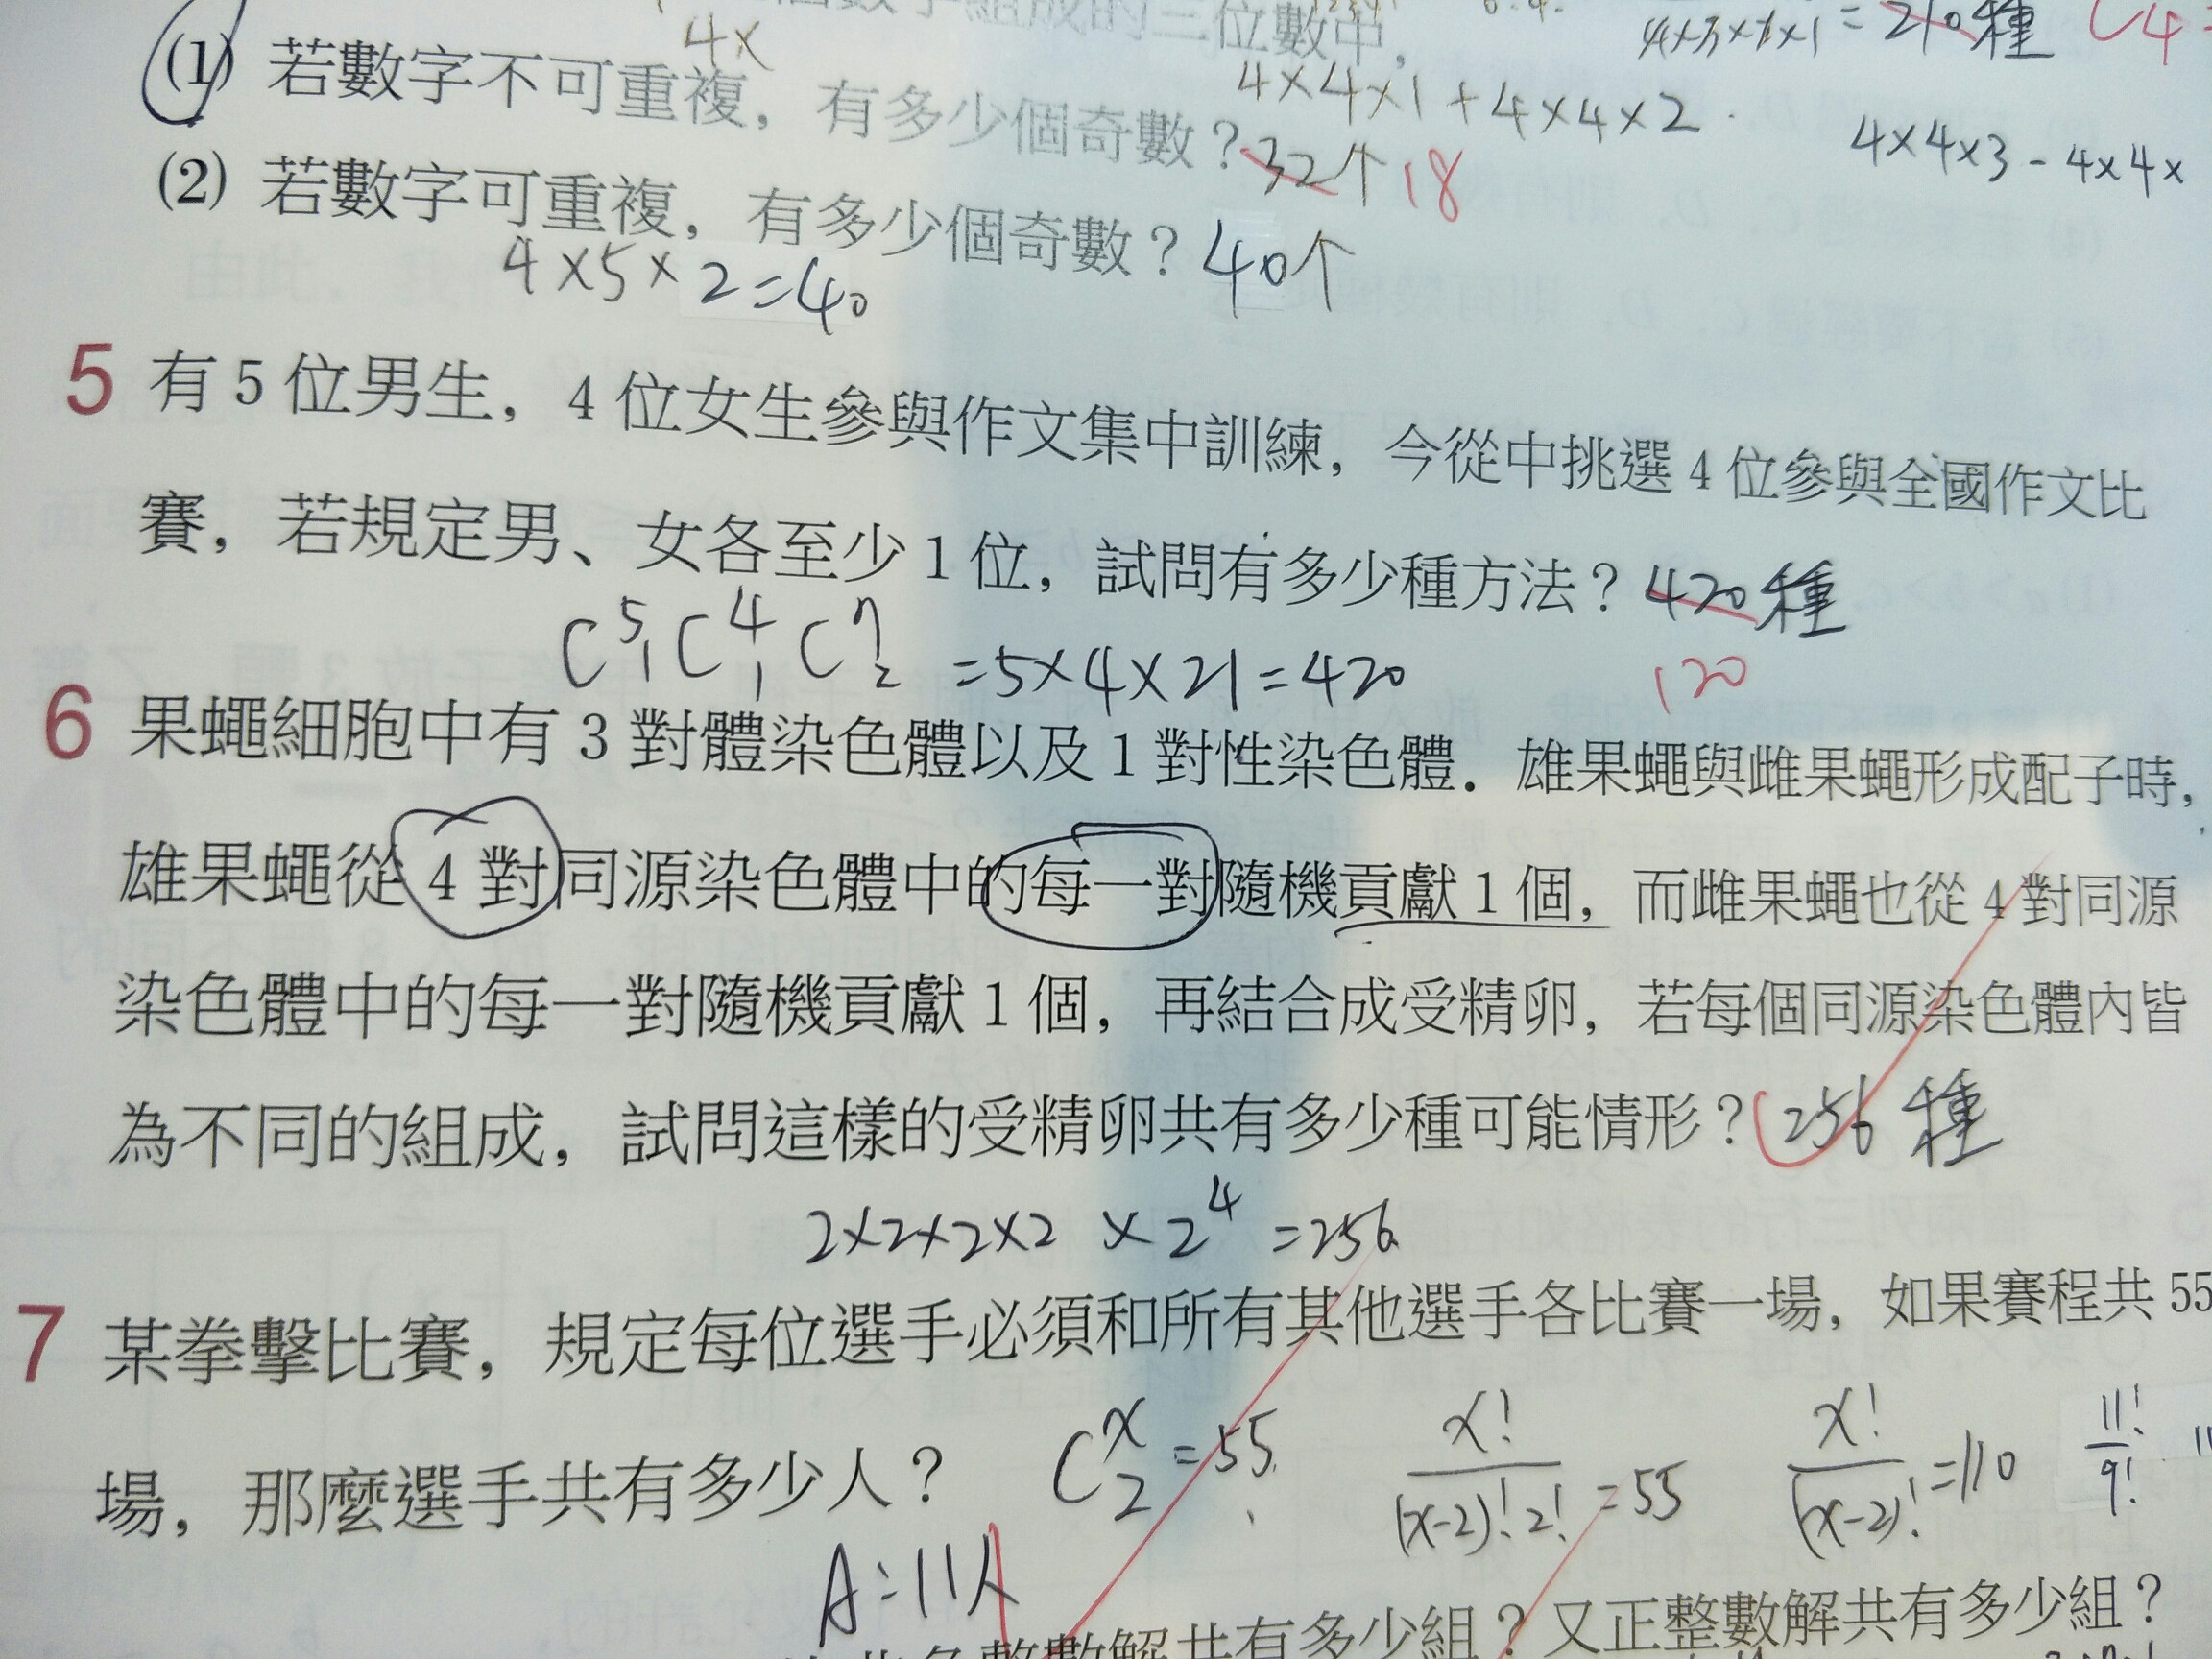 組成的三位數中，
4×3×1×1 = 210種
(1) 若數字不可重複，有多少個奇數？32个 18
4×
4×4×1+4×4×2
4×4×3-4×4×
(2) 若數字可重複，有多少個奇數？40个
4×5×2=40
5 有 5 位男生，4 位女生參與作文集中訓練，今從中挑選 4 位參與全國作文比
賽，若規定男、女各至少 1 位，試問有多少種方法？420種
120
C⁵₁C⁴₁C⁷₂ =5×4×21=420
6 果蠅細胞中有 3 對體染色體以及 1 對性染色體．雄果蠅與雌果蠅形成配子時，
雄果蠅從 4 對同源染色體中的每一對隨機貢獻 1 個，而雌果蠅也從 4 對同源
染色體中的每一對隨機貢獻 1 個，再結合成受精卵，若每個同源染色體內皆
為不同的組成，試問這樣的受精卵共有多少種可能情形？256 種
2×2×2×2 ×2⁴ =256
7 某拳擊比賽，規定每位選手必須和所有其他選手各比賽一場，如果賽程共 55
場，那麼選手共有多少人？
Cˣ₂=55
x!/(x-2)!2! =55
x!/(x-2)! =110
11!/9!
A:11人
整數解共有多少組？又正整數解共有多少組？